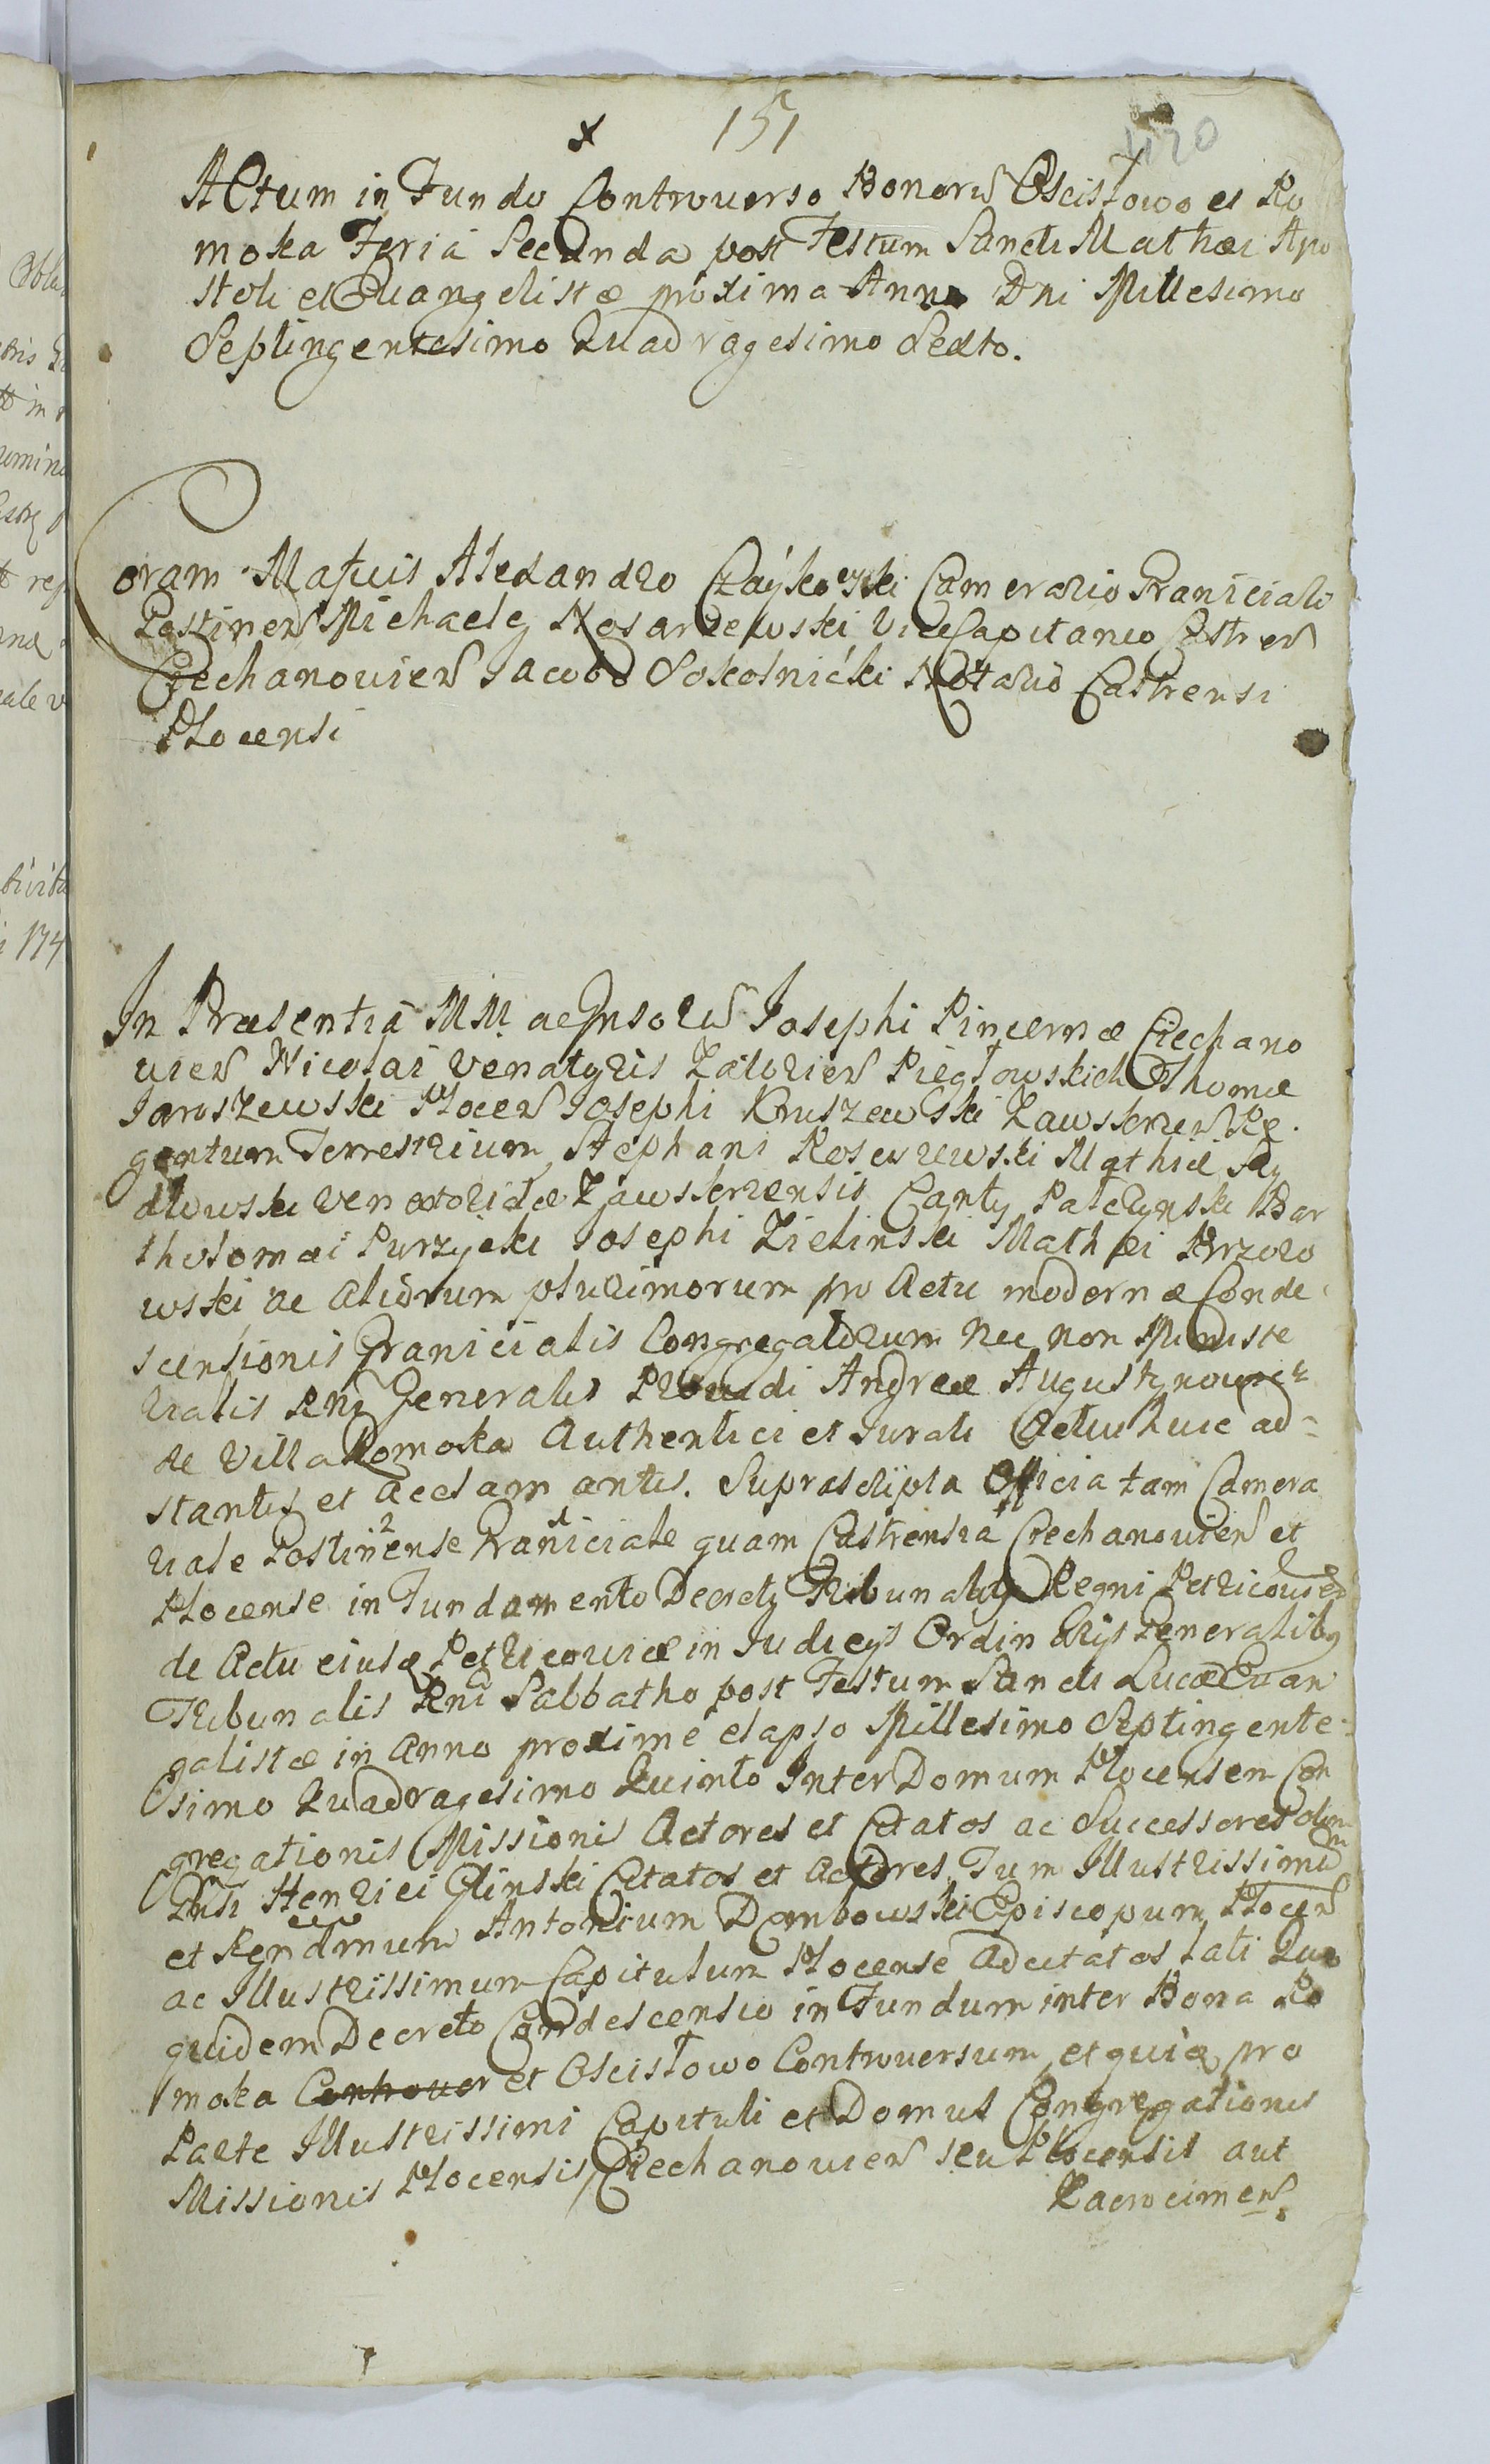 151
1120
Actum in Fundo Controuerso Bonorũ Oscisłowo et Ro
moka Feria Secunda post Festum Sancti Mathæi Apo
stoli et Euangelistæ proxima Anno Dni Millesimo
Septingentesimo Quadragesimo Sexto.
Coram Mafcis Alexandro Czaykowski Camerario Graniciali
Gostinen Michaele Nosarzewski ViceCapitaneo Castren
Czechanouien Jacobo Sokolnicki Notario Castrensi
Plocensi
In Præsentia MM ac Gnsorũ Josephi Pincernæ Ciechano
uien Nicolai Venatoris Zakrien Pięstowskich Thomæ
Jaroszewski Plocen Josephi Kruszewski Zawskrzen Re
gentum Terrestrium, Stephani Kosewewski Mathiæ Sy
dłowski Venatoridæ Zawskrzensis Canty Palczynski Bar
tholomæi Purzycki Josephi Zielinski Mathæi Brzozo
wski, ac Aliorum plurimorum pro Actu modernæ Conde
scensionis Granicialis Congregatorum Nec non Ministe
rialis Rni Generalis Prouidi Andreæ Augustynowicz
de Villa Romoka Authentici et Jurati Actui huic ad=
stantis et acclamantis. Suprascripta Officia tam Camera
riale Gostinense Graniciale quam Castrensia Ciechanouien et
Plocense in Fundamento Decreti Tribunalis Regni Petricouien
de Actu eiusq Petricouiæ in Judicijs Ordinarijs Generalibus
Tribunalis Rni Sabbatho post Festum Sancti Lucæ Euan
galistæ in Anno proxime elapso Millesimo Septingente=
simo Quadragesimo Quinto Inter Domum Plocensem Con
gregationis Missionis Actores et Citatos ac Successores olim
Gnsi Henrici Glinski Citatos et Actores, Tum Illustrissimũ
et Rendmum Antonium Dembowski Episcopum Plocen
ac Illustrissimum Capitulum Plocense Adcitatos Lati Quo
quidem Decreto Condescensio in Fundum inter Bona Ro
moka Controuer et Oscisłowo Controuersum, et quia pro
Parte Illustrissimi Capituli et Domus Congregationis
Missionis Plocensis, Ciechanouien seu Plocensis aut
Zacrocimen